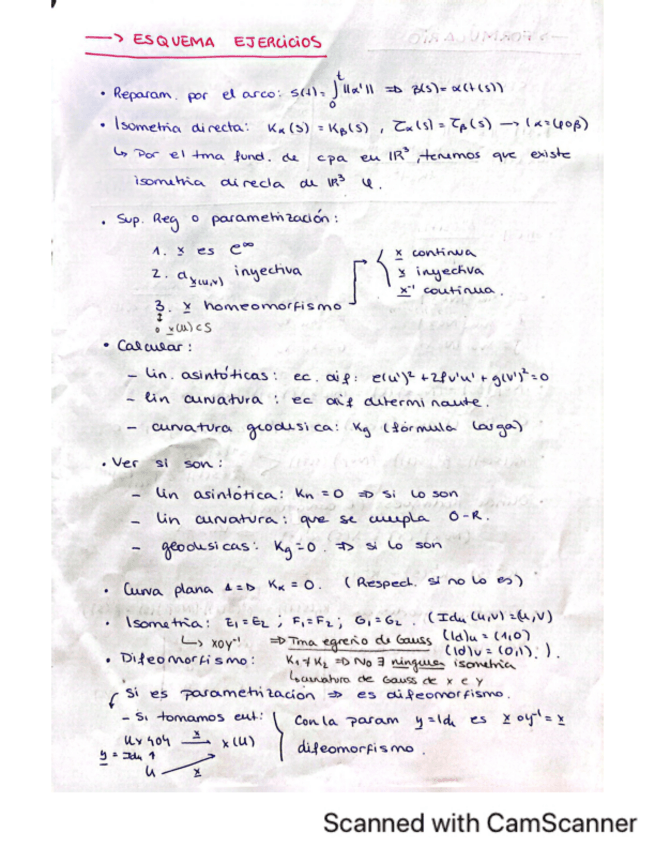 —> ESQUEMA EJERCICIOS
• Reparam. por el arco: s(t)=∫₀ᵗ ||α'|| => β(s)=α(t(s))
• Isometria directa: Kα(s)=Kβ(s), τα(s)=τβ(s) —> (α=φoβ)
↳ Por el tma fund. de cpa en IR³, tenemos que existe
isometria directa de IR³ φ.
• Sup. Reg o parametrización:
1. x es C^∞
2. d x(u,v) inyectiva
3. x homeomorfismo
x continua
x inyectiva
x⁻¹ continua.
x(u)⊂S
• Calcular:
– lin. asintóticas: ec. dif: e(u')²+2fv'u'+g(v')²=0
– lin curvatura: ec dif determinante.
– curvatura geodesica: Kg (fórmula larga)
• Ver si son:
– lin asintótica: Kn=0 => si lo son
– lin curvatura: que se cumpla O-R.
– geodesicas: Kg=0. => si lo son
• Curva plana <=> Kα=0. (Respect. si no lo es)
• Isometria: E₁=E₂; F₁=F₂; G₁=G₂. (Idu(u,v)=(u,v)
↳ xoy⁻¹ => Tma egregio de Gauss (Id)u=(1,0)
(Id)v=(0,1).).
• Difeomorfismo: K₁≠K₂ => No ∃ ninguna isometria
↳curvatura de Gauss de x e y
si es parametrización => es difeomorfismo.
– Si tomamos ent:
Ux{0} x—> x(U)
y=Idu
U x
Con la param y=Idu es xoy⁻¹=x
difeomorfismo.
Scanned with CamScanner